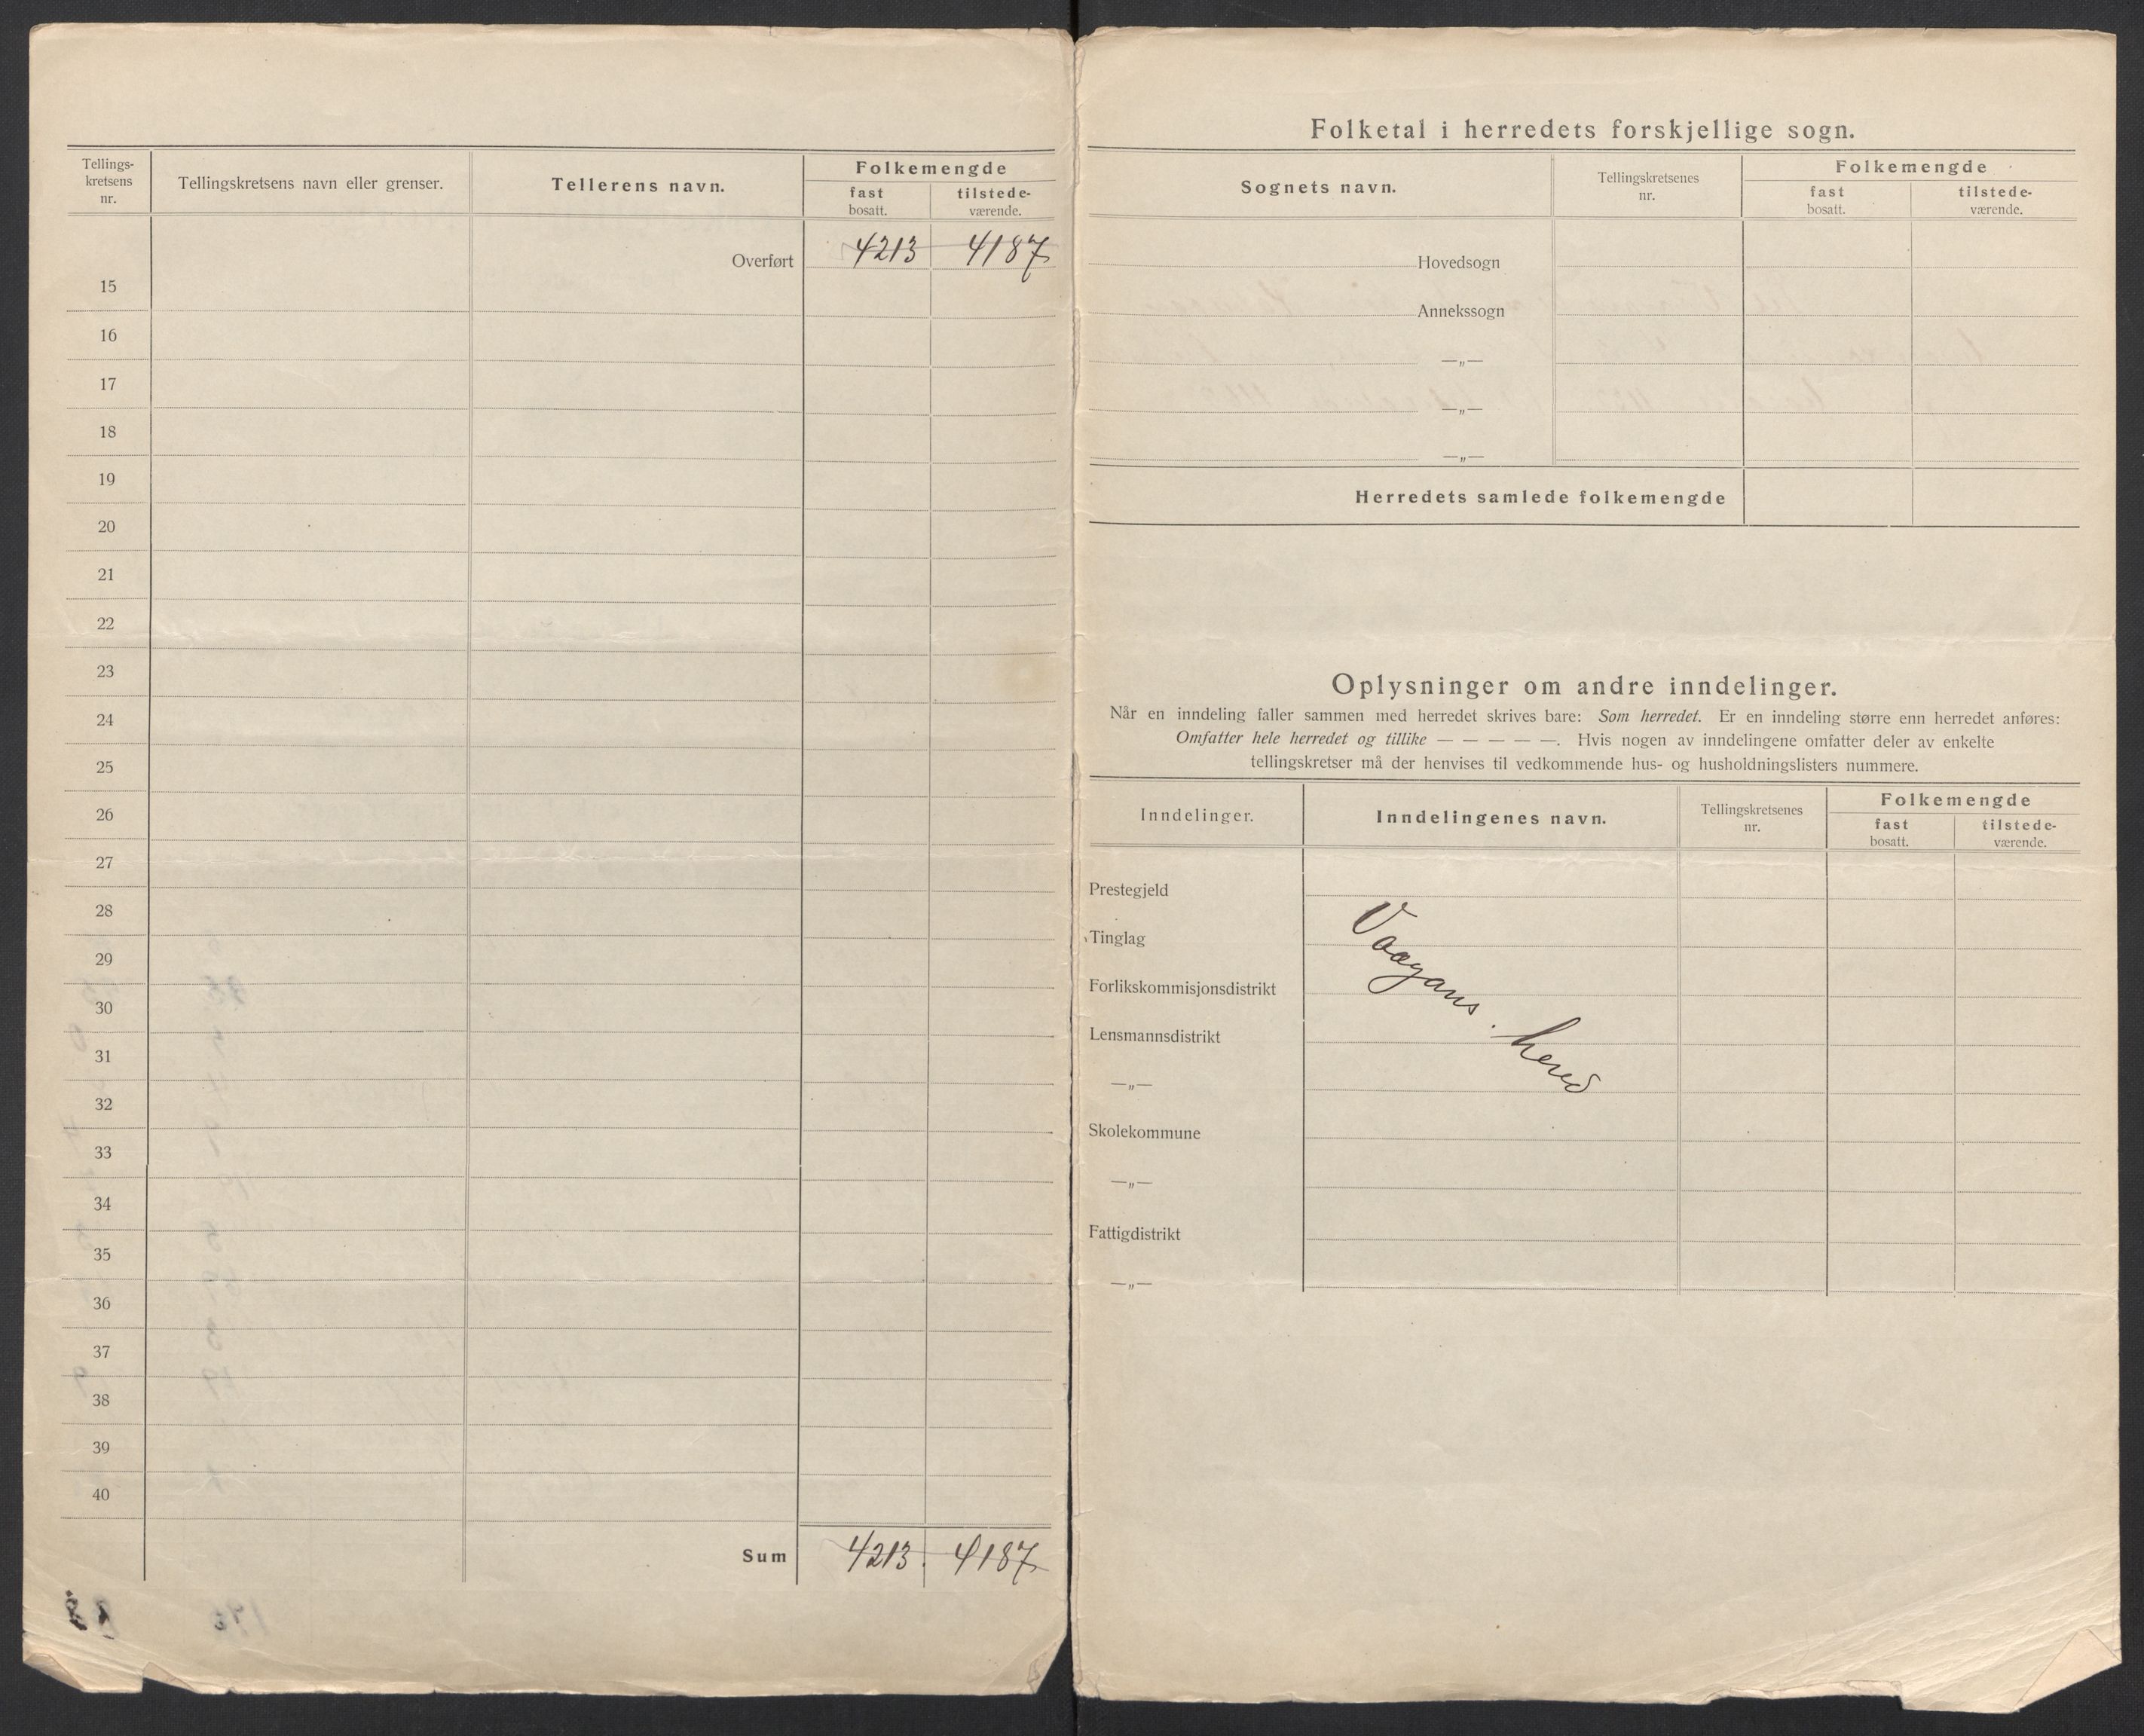 Tellings-
kretsens
nr.
Tellingskretsens navn eller grenser.
Tellerens navn.
Folkemengde
fast
bosatt.
tilstede-
værende.
Overført 4213 4187
15
16
17
18
19
20
21
22
23
24
25
26
27
28
29
30
31
32
33
34
35
36
37
38
39
40
Sum 4213. 4187
Folketal i herredets forskjellige sogn.
Sognets navn.
Tellingskretsenes
nr.
Folkemengde
fast
bosatt.
tilstede-
værende.
Hovedsogn
Annekssogn
—„—
—„—
—„—
Herredets samlede folkemengde
Oplysninger om andre inndelinger.
Når en inndeling faller sammen med herredet skrives bare: Som herredet. Er en inndeling større enn herredet anføres:
Omfatter hele herredet og tillike — — — — —. Hvis nogen av inndelingene omfatter deler av enkelte
tellingskretser må der henvises til vedkommende hus- og husholdningslisters nummere.
Inndelinger.
Inndelingenes navn.
Tellingskretsenes
nr.
Folkemengde
fast
bosatt.
tilstede-
værende.
Prestegjeld
Tinglag
Forlikskommisjonsdistrikt
Lensmannsdistrikt
—„—
Skolekommune
—„—
Fattigdistrikt
—„—
Vaagans herred